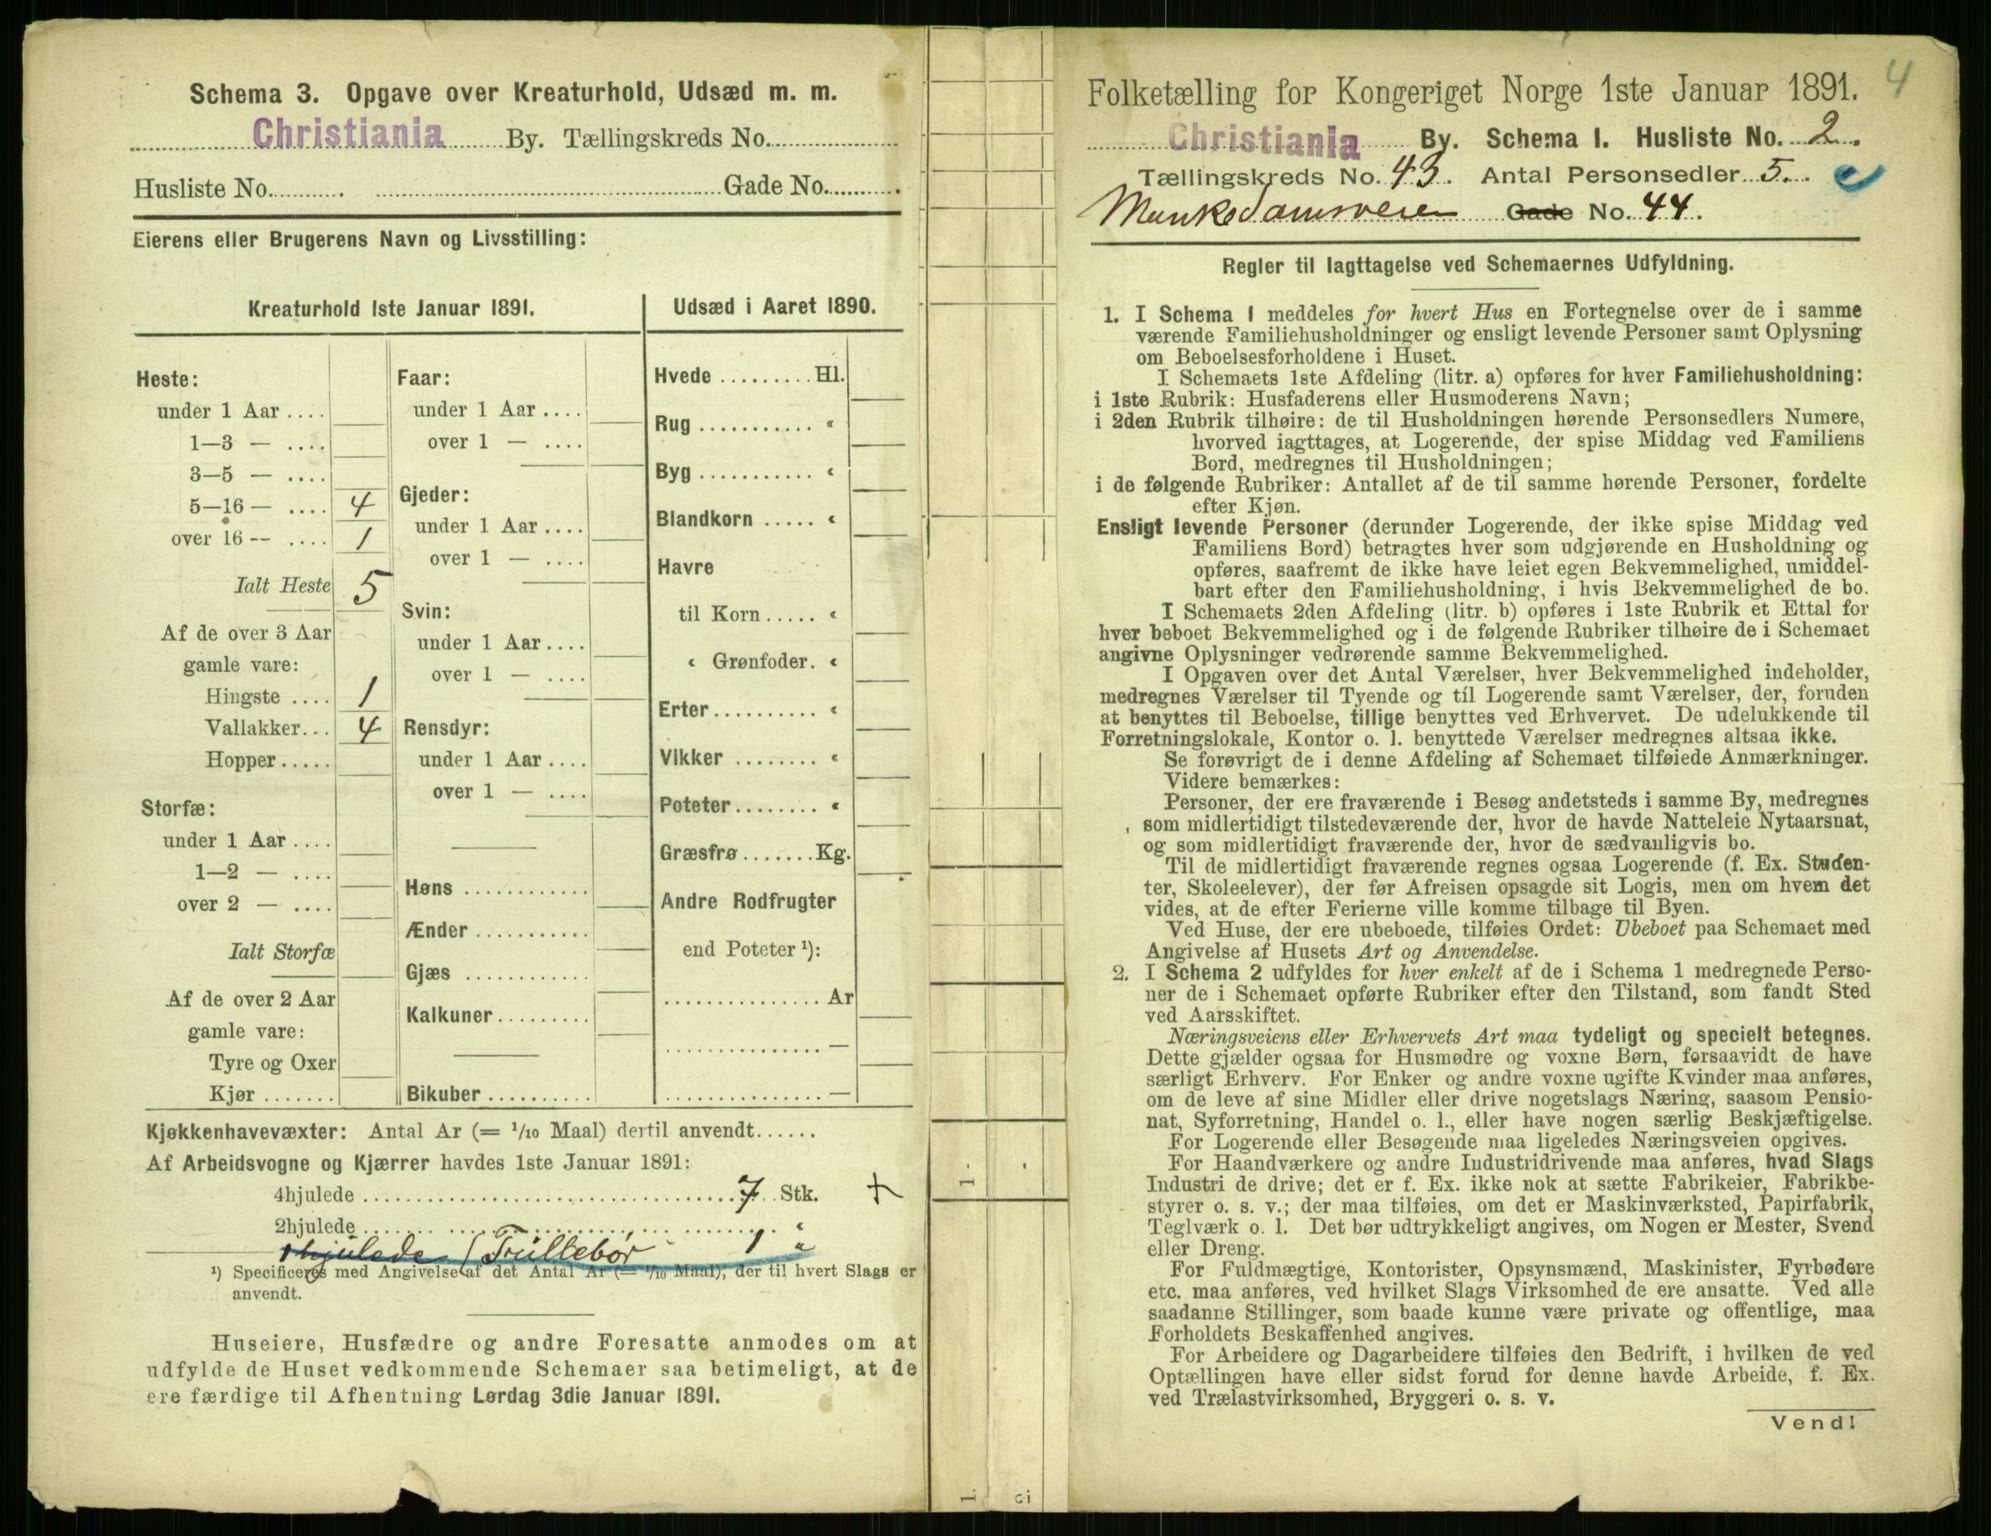 Schema 3. Opgave over Kreaturhold, Udsæd m. m.
Christiania By. Tællingskreds No.
Husliste No. Gade No.
Eierens eller Brugerens Navn og Livsstilling:
Kreaturhold 1ste Januar 1891.
Heste:
under 1 Aar ....
1—3 — ....
3—5 — ....
5—16 — .... 4
over 16 — .... 1
Ialt Heste 5
Af de over 3 Aar
gamle vare:
Hingste .... 1
Vallakker... 4
Hopper .....
Storfæ:
under 1 Aar ....
1—2 — ....
over 2 — ....
Ialt Storfæ
Af de over 2 Aar
gamle vare:
Tyre og Oxer
Kjør .......
Faar:
under 1 Aar ....
over 1 — ....
Gjeder:
under 1 Aar ....
over 1 — ....
Svin:
under 1 Aar ....
over 1 — ....
Rensdyr:
under 1 Aar ....
over 1 — ....
Høns ............
Ænder ...........
Gjæs ............
Kalkuner .........
Bikuber ..........
Udsæd i Aaret 1890.
Hvede ......... Hl.
Rug ........... «
Byg ........... «
Blandkorn ..... «
Havre
til Korn ..... «
« Grønfoder. «
Erter .......... «
Vikker ........ «
Poteter ........ «
Græsfrø ....... Kg.
Andre Rodfrugter
end Poteter ¹):
............... Ar
............... —
............... —
Kjøkkenhavevæxter: Antal Ar (= 1/10 Maal) dertil anvendt......
Af Arbeidsvogne og Kjærrer havdes 1ste Januar 1891:
4hjulede ........ 7 Stk. +
2hjulede ........ «
1hjulede / Trillebør 1 «
¹) Specificeres med Angivelse af det Antal Ar (= 1/10 Maal), der til hvert Slags er
anvendt.
Huseiere, Husfædre og andre Foresatte anmodes om at
udfylde de Huset vedkommende Schemaer saa betimeligt, at de
ere færdige til Afhentning Lørdag 3die Januar 1891.
1.
1.
4
Folketælling for Kongeriget Norge 1ste Januar 1891.
Christiania By. Schema I. Husliste No. 2.
Tællingskreds No. 43. Antal Personsedler 5.
Munkedamsveien Gade No. 44.
Regler til Iagttagelse ved Schemaernes Udfyldning.
1. I Schema I meddeles for hvert Hus en Fortegnelse over de i samme
værende Familiehusholdninger og ensligt levende Personer samt Oplysning
om Beboelsesforholdene i Huset.
I Schemaets 1ste Afdeling (litr. a) opføres for hver Familiehusholdning:
i 1ste Rubrik: Husfaderens eller Husmoderens Navn;
i 2den Rubrik tilhøire: de til Husholdningen hørende Personsedlers Numere,
hvorved iagttages, at Logerende, der spise Middag ved Familiens
Bord, medregnes til Husholdningen;
i de følgende Rubriker: Antallet af de til samme hørende Personer, fordelte
efter Kjøn.
Ensligt levende Personer (derunder Logerende, der ikke spise Middag ved
Familiens Bord) betragtes hver som udgjørende en Husholdning og
opføres, saafremt de ikke have leiet egen Bekvemmelighed, umiddel-
bart efter den Familiehusholdning, i hvis Bekvemmelighed de bo.
I Schemaets 2den Afdeling (litr. b) opføres i 1ste Rubrik et Ettal for
hver beboet Bekvemmelighed og i de følgende Rubriker tilhøire de i Schemaet
angivne Oplysninger vedrørende samme Bekvemmelighed.
I Opgaven over det Antal Værelser, hver Bekvemmelighed indeholder,
medregnes Værelser til Tyende og til Logerende samt Værelser, der, foruden
at benyttes til Beboelse, tillige benyttes ved Erhvervet. De udelukkende til
Forretningslokale, Kontor o. l. benyttede Værelser medregnes altsaa ikke.
Se forøvrigt de i denne Afdeling af Schemaet tilføiede Anmærkninger.
Videre bemærkes:
Personer, der ere fraværende i Besøg andetsteds i samme By, medregnes
som midlertidigt tilstedeværende der, hvor de havde Natteleie Nytaarsnat,
og som midlertidigt fraværende der, hvor de sædvanligvis bo.
Til de midlertidigt fraværende regnes ogsaa Logerende (f. Ex. Studen-
ter, Skoleelever), der før Afreisen opsagde sit Logis, men om hvem det
vides, at de efter Ferierne ville komme tilbage til Byen.
Ved Huse, der ere ubeboede, tilføies Ordet: Ubeboet paa Schemaet med
Angivelse af Husets Art og Anvendelse.
2. I Schema 2 udfyldes for hver enkelt af de i Schema 1 medregnede Perso-
ner de i Schemaet opførte Rubriker efter den Tilstand, som fandt Sted
ved Aarsskiftet.
Næringsveiens eller Erhvervets Art maa tydeligt og specielt betegnes.
Dette gjælder ogsaa for Husmødre og voxne Børn, forsaavidt de have
særligt Erhverv. For Enker og andre voxne ugifte Kvinder maa anføres,
om de leve af sine Midler eller drive nogetslags Næring, saasom Pensio-
nat, Syforretning, Handel o. l., eller have nogen særlig Beskjæftigelse.
For Logerende eller Besøgende maa ligeledes Næringsveien opgives.
For Haandværkere og andre Industridrivende maa anføres, hvad Slags
Industri de drive; det er f. Ex. ikke nok at sætte Fabrikeier, Fabrikbe-
styrer o. s. v.; der maa tilføies, om det er Maskinværksted, Papirfabrik,
Teglværk o. l. Det bør udtrykkeligt angives, om Nogen er Mester, Svend
eller Dreng.
For Fuldmægtige, Kontorister, Opsynsmænd, Maskinister, Fyrbødere
etc. maa anføres, ved hvilket Slags Virksomhed de ere ansatte. Ved alle
saadanne Stillinger, som baade kunne være private og offentlige, maa
Forholdets Beskaffenhed angives.
For Arbeidere og Dagarbeidere tilføies den Bedrift, i hvilken de ved
Optællingen have eller sidst forud for denne havde Arbeide, f. Ex.
ved Trælastvirksomhed, Bryggeri o. s. v.
Vend!